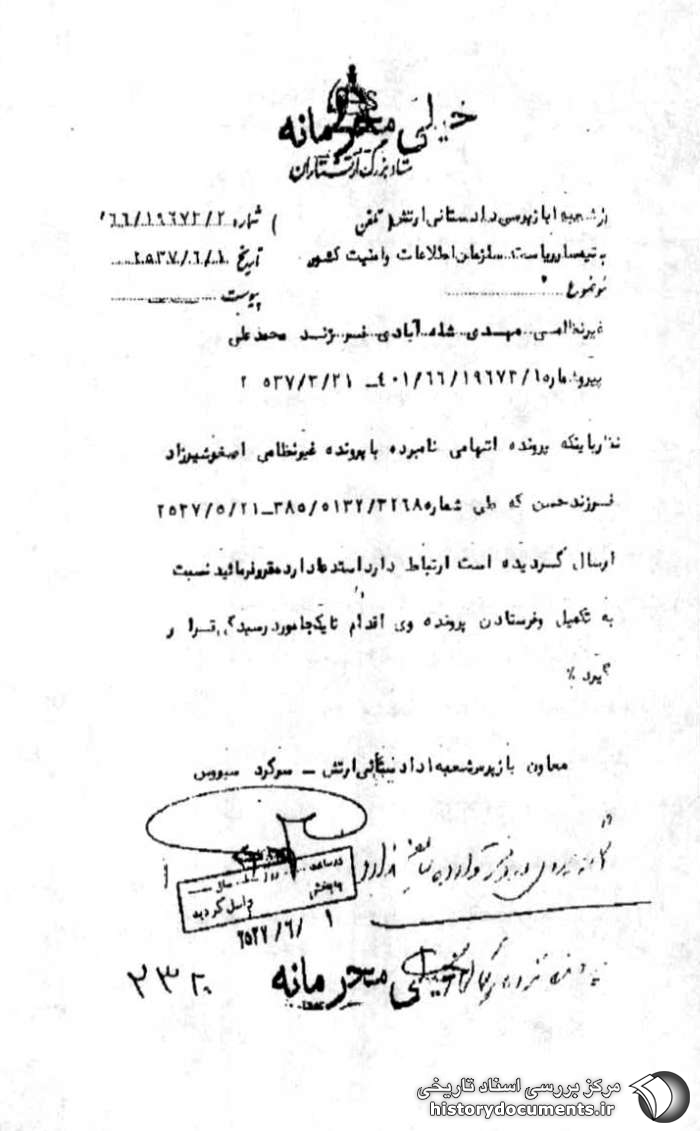 خیلی محرمانه
ستاد بزرگ ارتشتاران
از شعبه ۱ بازپرسی دادستانی ارتش (تلفن ) شماره ۶۶/۱۹۶۷۳/۲
به تیمسار ریاست سازمان اطلاعات و امنیت کشور تاریخ ۲۵۳۷/۶/۱
موضوع پیوست
غیرنظامی مهدی شاه آبادی فرزند محمدعلی
پیرو شماره ۴۰۱/۶۶/۱۹۶۷۳/۱۵ ـ ۲۵۳۷/۳/۲۱
نظر باینکه پرونده اتهامی نامبرده با پرونده غیرنظامی اصغر شیرزاد
فرزند حسن که طی شماره ۳۸۵/۵۱۳۲/۳۲۶۸ ـ ۲۵۳۷/۵/۲۱
ارسال گردیده است ارتباط دارد استدعا دارد مقرر فرمائید نسبت
به تکمیل و فرستادن پرونده وی اقدام تا یکجا مورد رسیدگی قرار
گیرد ٪
معاون بازپرس شعبه ۱ دادستانی ارتش ـ سرگرد سیروس
در ساعت روز سال
به بخش واصل گردید
۲۵۳۷/۶/۱
خیلی محرمانه
مرکز بررسی اسناد تاریخی
historydocuments.ir